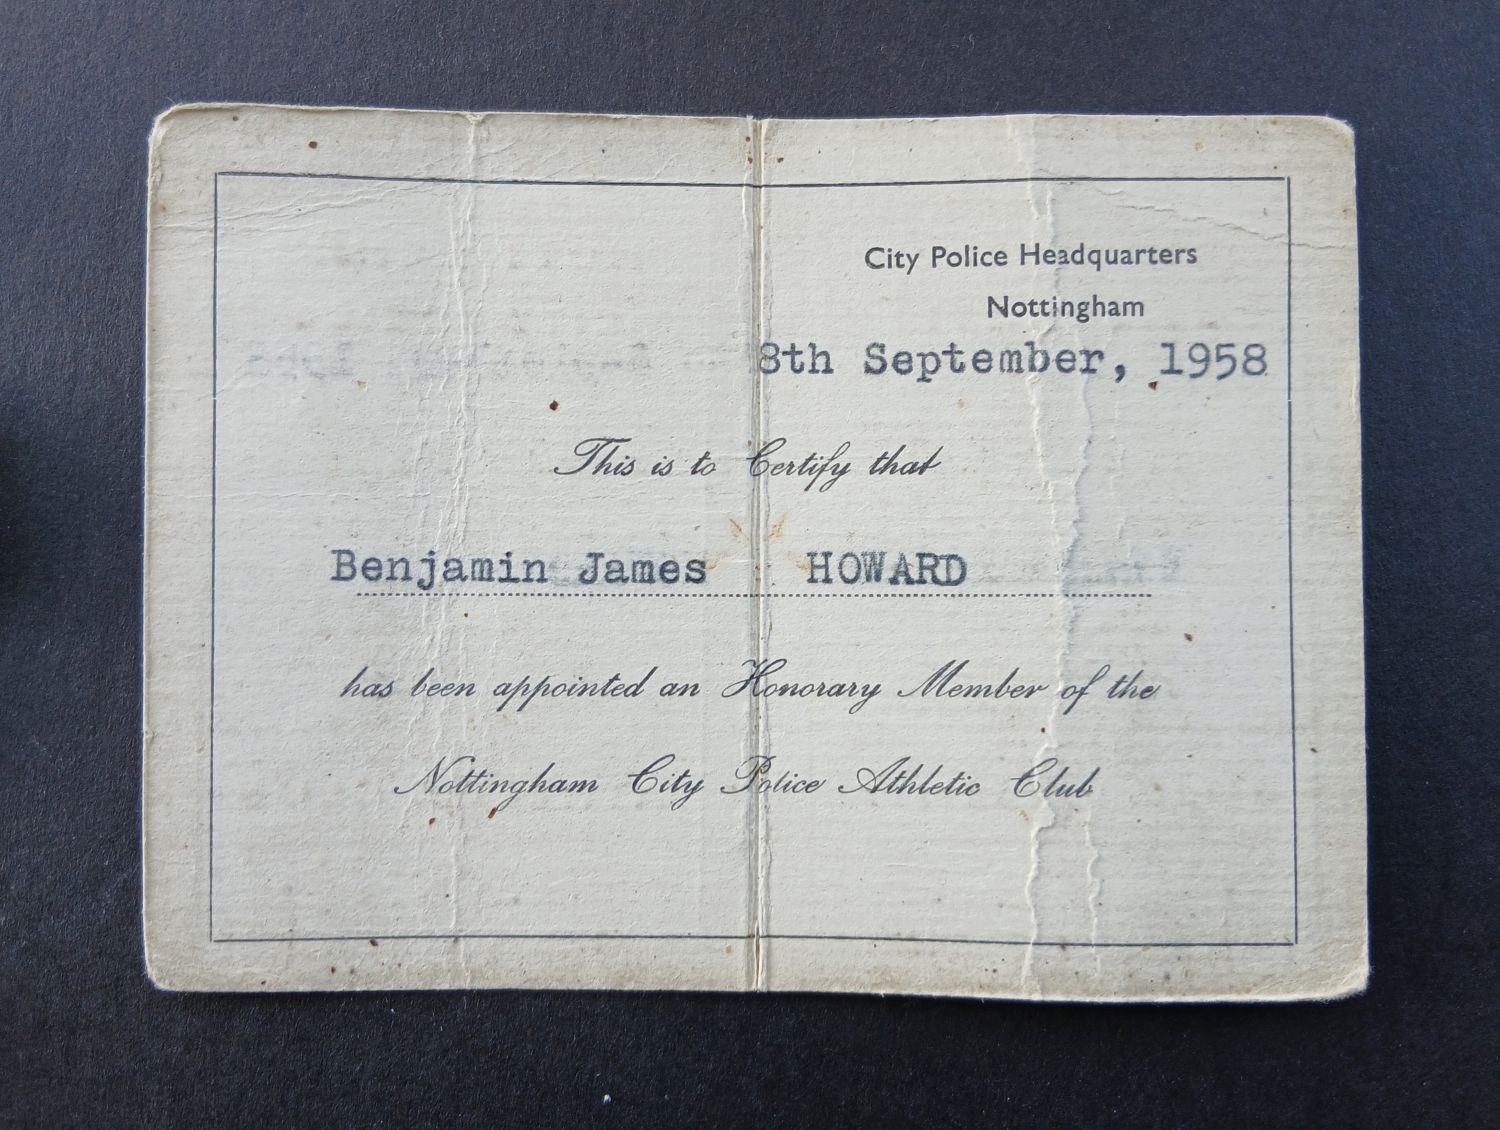 City Police Headquarters
Nottingham
8th September, 1958
This is to Certify that
Benjamin James HOWARD
has been appointed an Honorary Member of the
Nottingham City Police Athletic Club